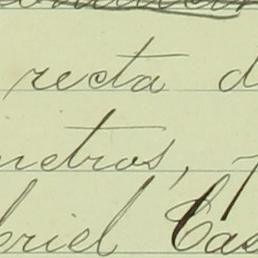 recta d
metros, 
briel Cas